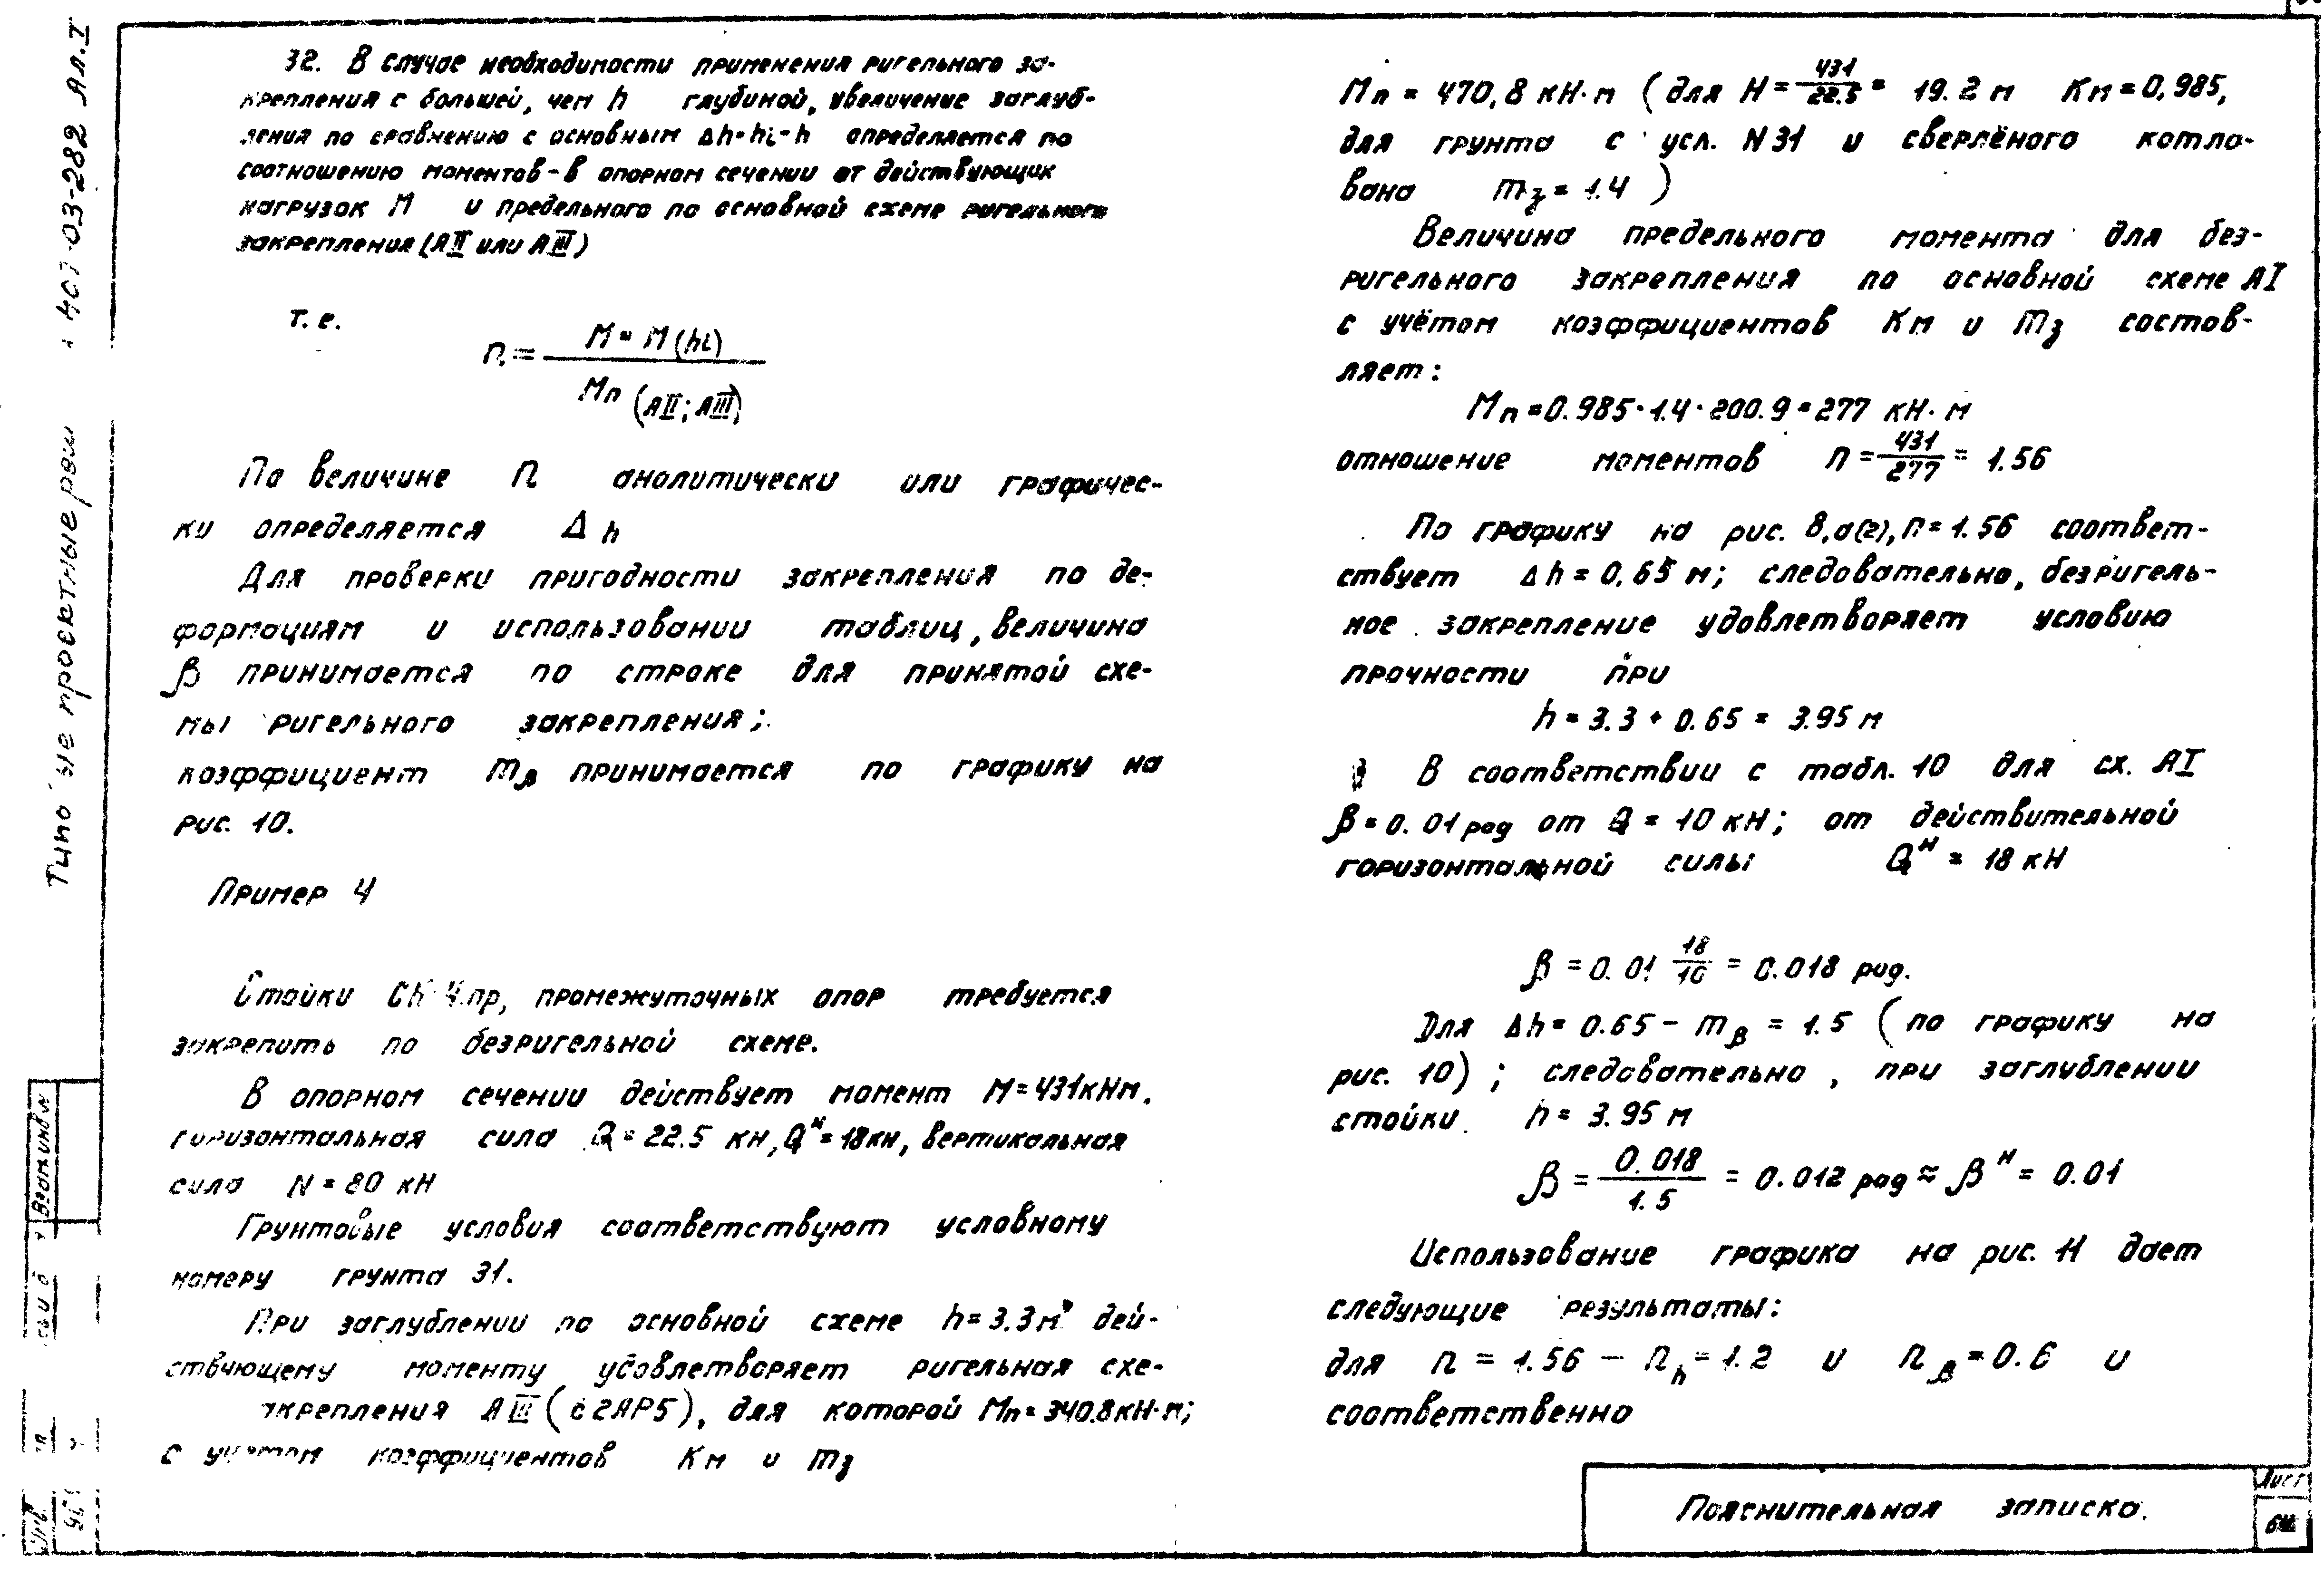 32. В случае необходимости применения ригельного за-
крепления с большей, чем h глубиной, увеличение заглуб-
ления по сравнению с основным Δh=hi-h определяется по
соотношению моментов-в опорном сечении от действующих
нагрузок М и предельного по основной схеме ригельного
закрепления (АII или АIII)
т.е.
n = M = M(hi) / Mп (АII; АIII)
По величине n аналитически или графичес-
ки определяется Δh
Для проверки пригодности закрепления по де-
формациям и использовании таблиц, величина
β принимается по строке для принятой схе-
мы ригельного закрепления;
коэффициент mβ принимается по графику на
рис. 10.
Пример 4
Стойки промежуточных опор требуется
закрепить по безригельной схеме.
В опорном сечении действует момент М=431кНм.
горизонтальная сила Q=22.5 кн, Qᴴ=18кн, вертикальная
сила N=80 кН
Грунтовые условия соответствуют условному
номеру грунта 31.
При заглублении по основной схеме h=3.3м дей-
ствующему моменту удовлетворяет ригельная схе-
крепления АIII (с 2АР5), для которой Мп=340.8кН·м;
с учетом коэффициентов Км и mз
Мп = 470,8 кН·м (для H = 431/22.5 = 19.2 м Км=0,985,
для грунта с усл. N31 и сверлёного котло-
вана mз = 1.4)
Величина предельного момента для без-
ригельного закрепления по основной схеме АI
с учётом коэффициентов Км и mз состав-
ляет:
Мп=0.985·1.4·200.9=277 кН·м
отношение моментов n = 431/277 = 1.56
По графику на рис. 8,а(г), n=1.56 соответ-
ствует Δh=0,65 м; следовательно, безригель-
ное закрепление удовлетворяет условию
прочности при
h = 3.3 + 0.65 = 3.95 м
В соответствии с табл. 10 для сх. АI
β=0.01 рад от Q = 10 кН; от действительной
горизонтальной силы Qᴴ = 18 кН
β = 0.01 18/10 = 0.018 рад.
Для Δh=0.65 - mβ = 1.5 (по графику на
рис. 10); следовательно, при заглублении
стойки h = 3.95 м
β = 0.018/1.5 = 0.012 рад ≈ βᴴ = 0.01
Использование графика на рис. 11 дает
следующие результаты:
для n = 1.56 - nh = 1.2 и nβ = 0.6 и
соответственно
Пояснительная записка.
Лист
407-03-282 Ал.I
Взам инв N